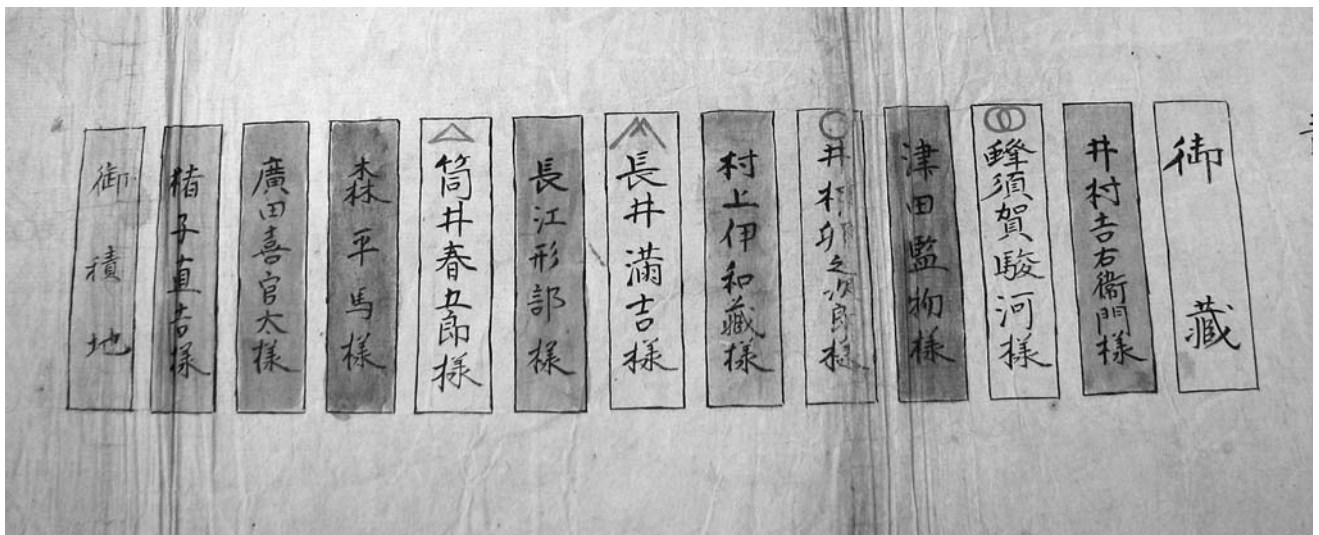 御藏
井村吉右衞門様
蜂須賀駿河様
津田監物様
井村卯之次郎様
村上伊和藏様
長井満吉様
長江形部様
筒井春五郎様
森平馬様
廣田喜官太様
猪子直吉様
御積地